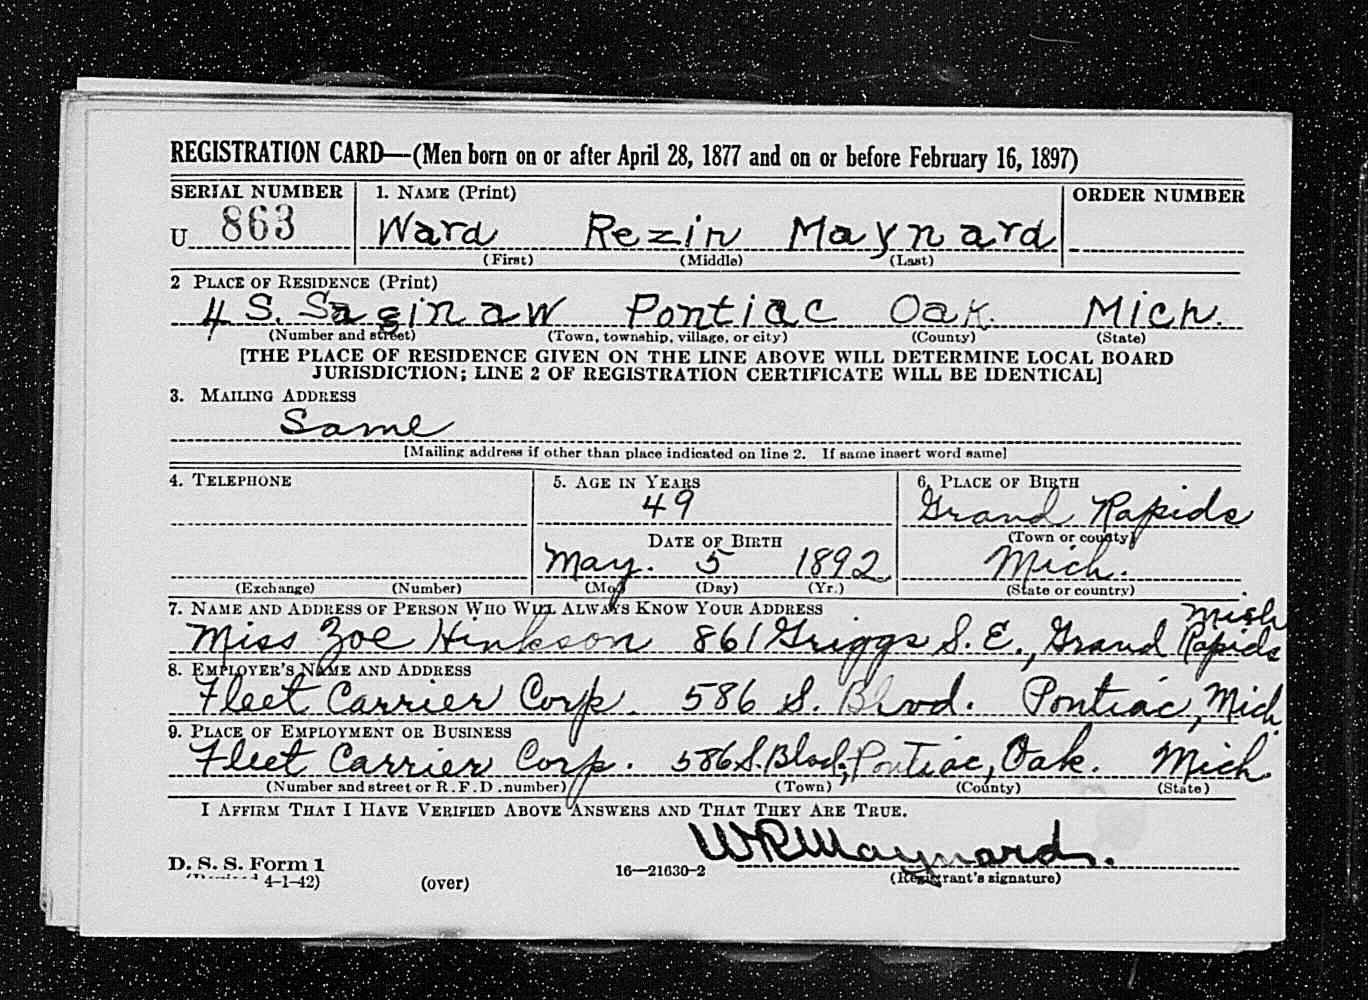 REGISTRATION CARD—(Men born on or after April 28, 1877 and on or before February 16, 1897)
SERIAL NUMBER 1. NAME (Print) ORDER NUMBER
U 863 Ward Rezin Maynard
(First) (Middle) (Last)
2 PLACE OF RESIDENCE (Print)
4 S. Saginaw Pontiac Oak. Mich.
(Number and street) (Town, township, village, or city) (County) (State)
[THE PLACE OF RESIDENCE GIVEN ON THE LINE ABOVE WILL DETERMINE LOCAL BOARD
JURISDICTION; LINE 2 OF REGISTRATION CERTIFICATE WILL BE IDENTICAL]
3. MAILING ADDRESS
Same
[Mailing address if other than place indicated on line 2. If same insert word same]
4. TELEPHONE 5. AGE IN YEARS 6. PLACE OF BIRTH
49 Grand Rapids
DATE OF BIRTH (Town or county)
May. 5 1892 Mich.
(Exchange) (Number) (Mo.) (Day) (Yr.) (State or country)
7. NAME AND ADDRESS OF PERSON WHO WILL ALWAYS KNOW YOUR ADDRESS
Mich
Miss Zoe Hinkson 861 Griggs S. E., Grand Rapids
8. EMPLOYER'S NAME AND ADDRESS
Fleet Carrier Corp. 586 S. Blvd. Pontiac, Mich
9. PLACE OF EMPLOYMENT OR BUSINESS
Fleet Carrier Corp. 586 S. Blvd., Pontiac, Oak. Mich
(Number and street or R. F. D. number) (Town) (County) (State)
I AFFIRM THAT I HAVE VERIFIED ABOVE ANSWERS AND THAT THEY ARE TRUE.
W R Maynard.
D. S. S. Form 1
4-1-42) (over) 16—21630-2 (Registrant's signature)